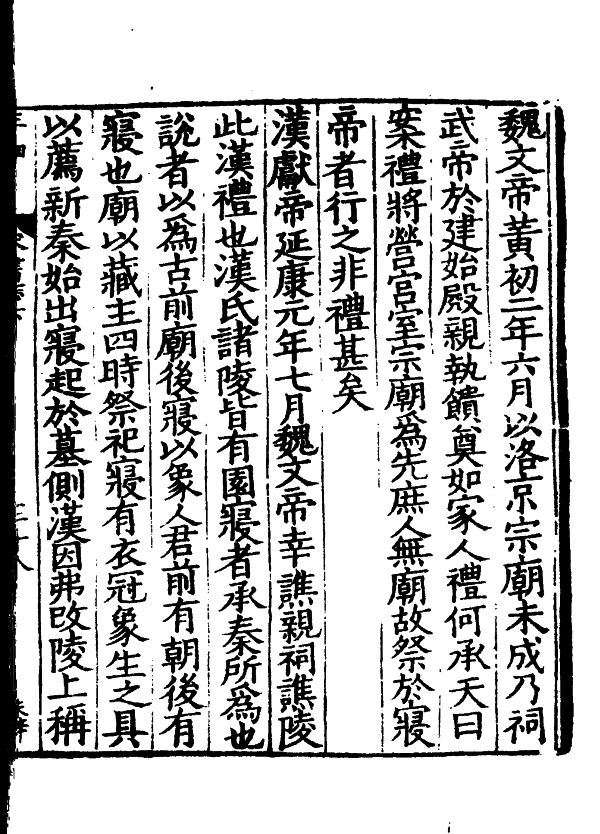 魏文帝黃初二年六月以洛京宗廟未成乃祠
武帝於建始殿親執饋奠如家人禮何承天曰
案禮將營宮室宗廟爲先庶人無廟故祭於寢
帝者行之非禮甚矣
漢獻帝延康元年七月魏文帝幸譙親祠譙陵
此漢禮也漢氏諸陵皆有園寢者承秦所爲也
說者以爲古前廟後寢以象人君前有朝後有
寢也廟以藏主四時祭祀寢有衣冠象生之具
以薦新秦始出寢起於墓側漢因弗改陵上稱